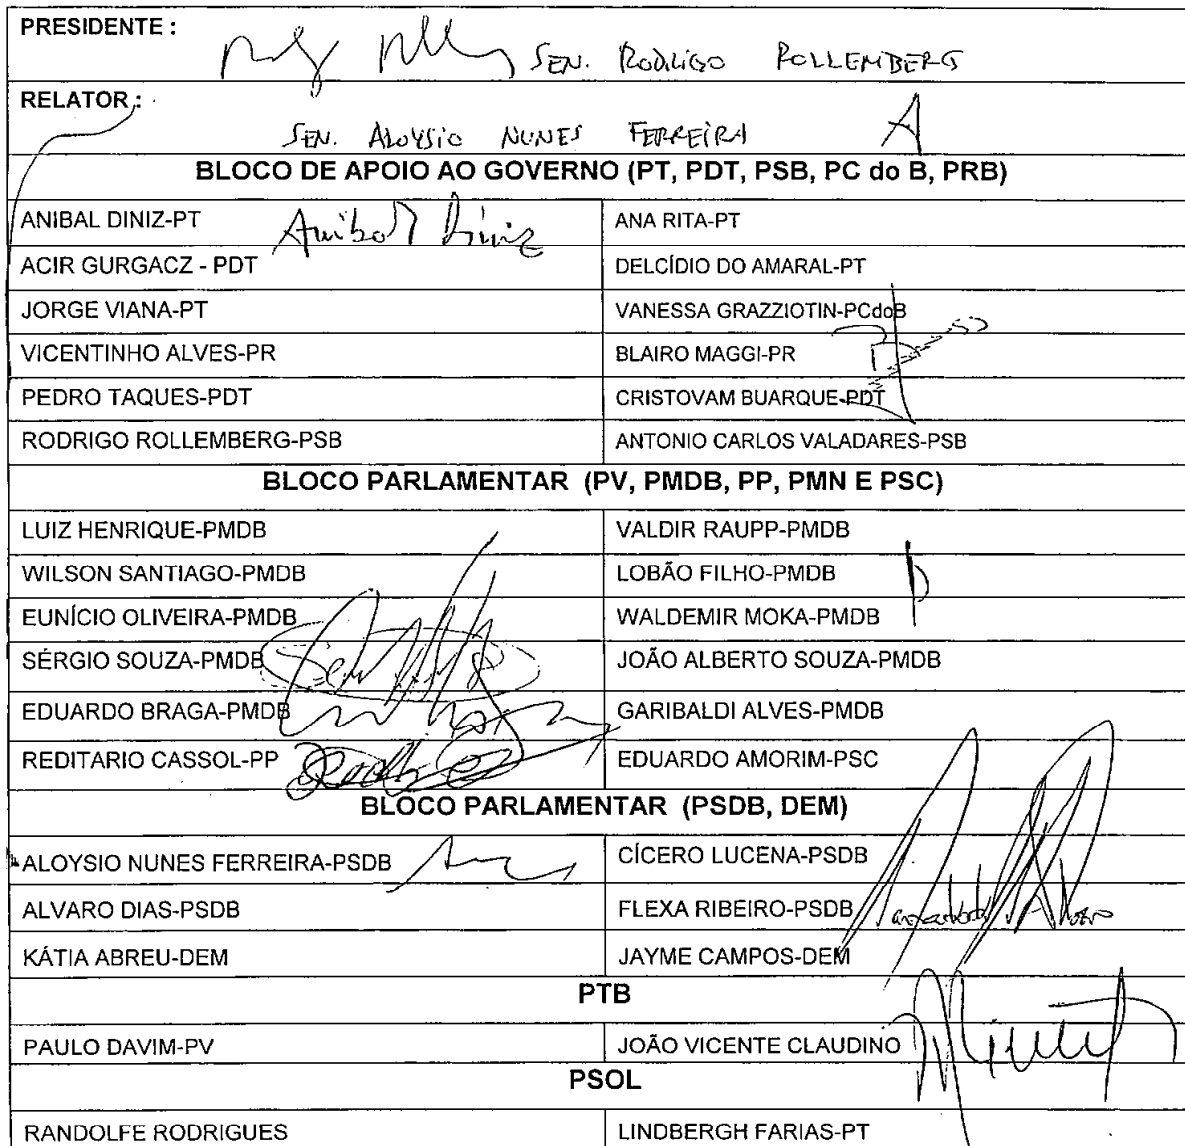 PRESIDENTE :
SEN. RODRIGO ROLLEMBERG
RELATOR :
SEN. ALOYSIO NUNES FERREIRA
BLOCO DE APOIO AO GOVERNO (PT, PDT, PSB, PC do B, PRB)
ANIBAL DINIZ-PT Anibal Diniz ANA RITA-PT
ACIR GURGACZ - PDT DELCÍDIO DO AMARAL-PT
JORGE VIANA-PT VANESSA GRAZZIOTIN-PCdoB
VICENTINHO ALVES-PR BLAIRO MAGGI-PR
PEDRO TAQUES-PDT CRISTOVAM BUARQUE-PDT
RODRIGO ROLLEMBERG-PSB ANTONIO CARLOS VALADARES-PSB
BLOCO PARLAMENTAR (PV, PMDB, PP, PMN E PSC)
LUIZ HENRIQUE-PMDB VALDIR RAUPP-PMDB
WILSON SANTIAGO-PMDB LOBÃO FILHO-PMDB
EUNÍCIO OLIVEIRA-PMDB WALDEMIR MOKA-PMDB
SÉRGIO SOUZA-PMDB JOÃO ALBERTO SOUZA-PMDB
EDUARDO BRAGA-PMDB GARIBALDI ALVES-PMDB
REDITARIO CASSOL-PP EDUARDO AMORIM-PSC
BLOCO PARLAMENTAR (PSDB, DEM)
ALOYSIO NUNES FERREIRA-PSDB CÍCERO LUCENA-PSDB
ALVARO DIAS-PSDB FLEXA RIBEIRO-PSDB
KÁTIA ABREU-DEM JAYME CAMPOS-DEM
PTB
PAULO DAVIM-PV JOÃO VICENTE CLAUDINO
PSOL
RANDOLFE RODRIGUES LINDBERGH FARIAS-PT